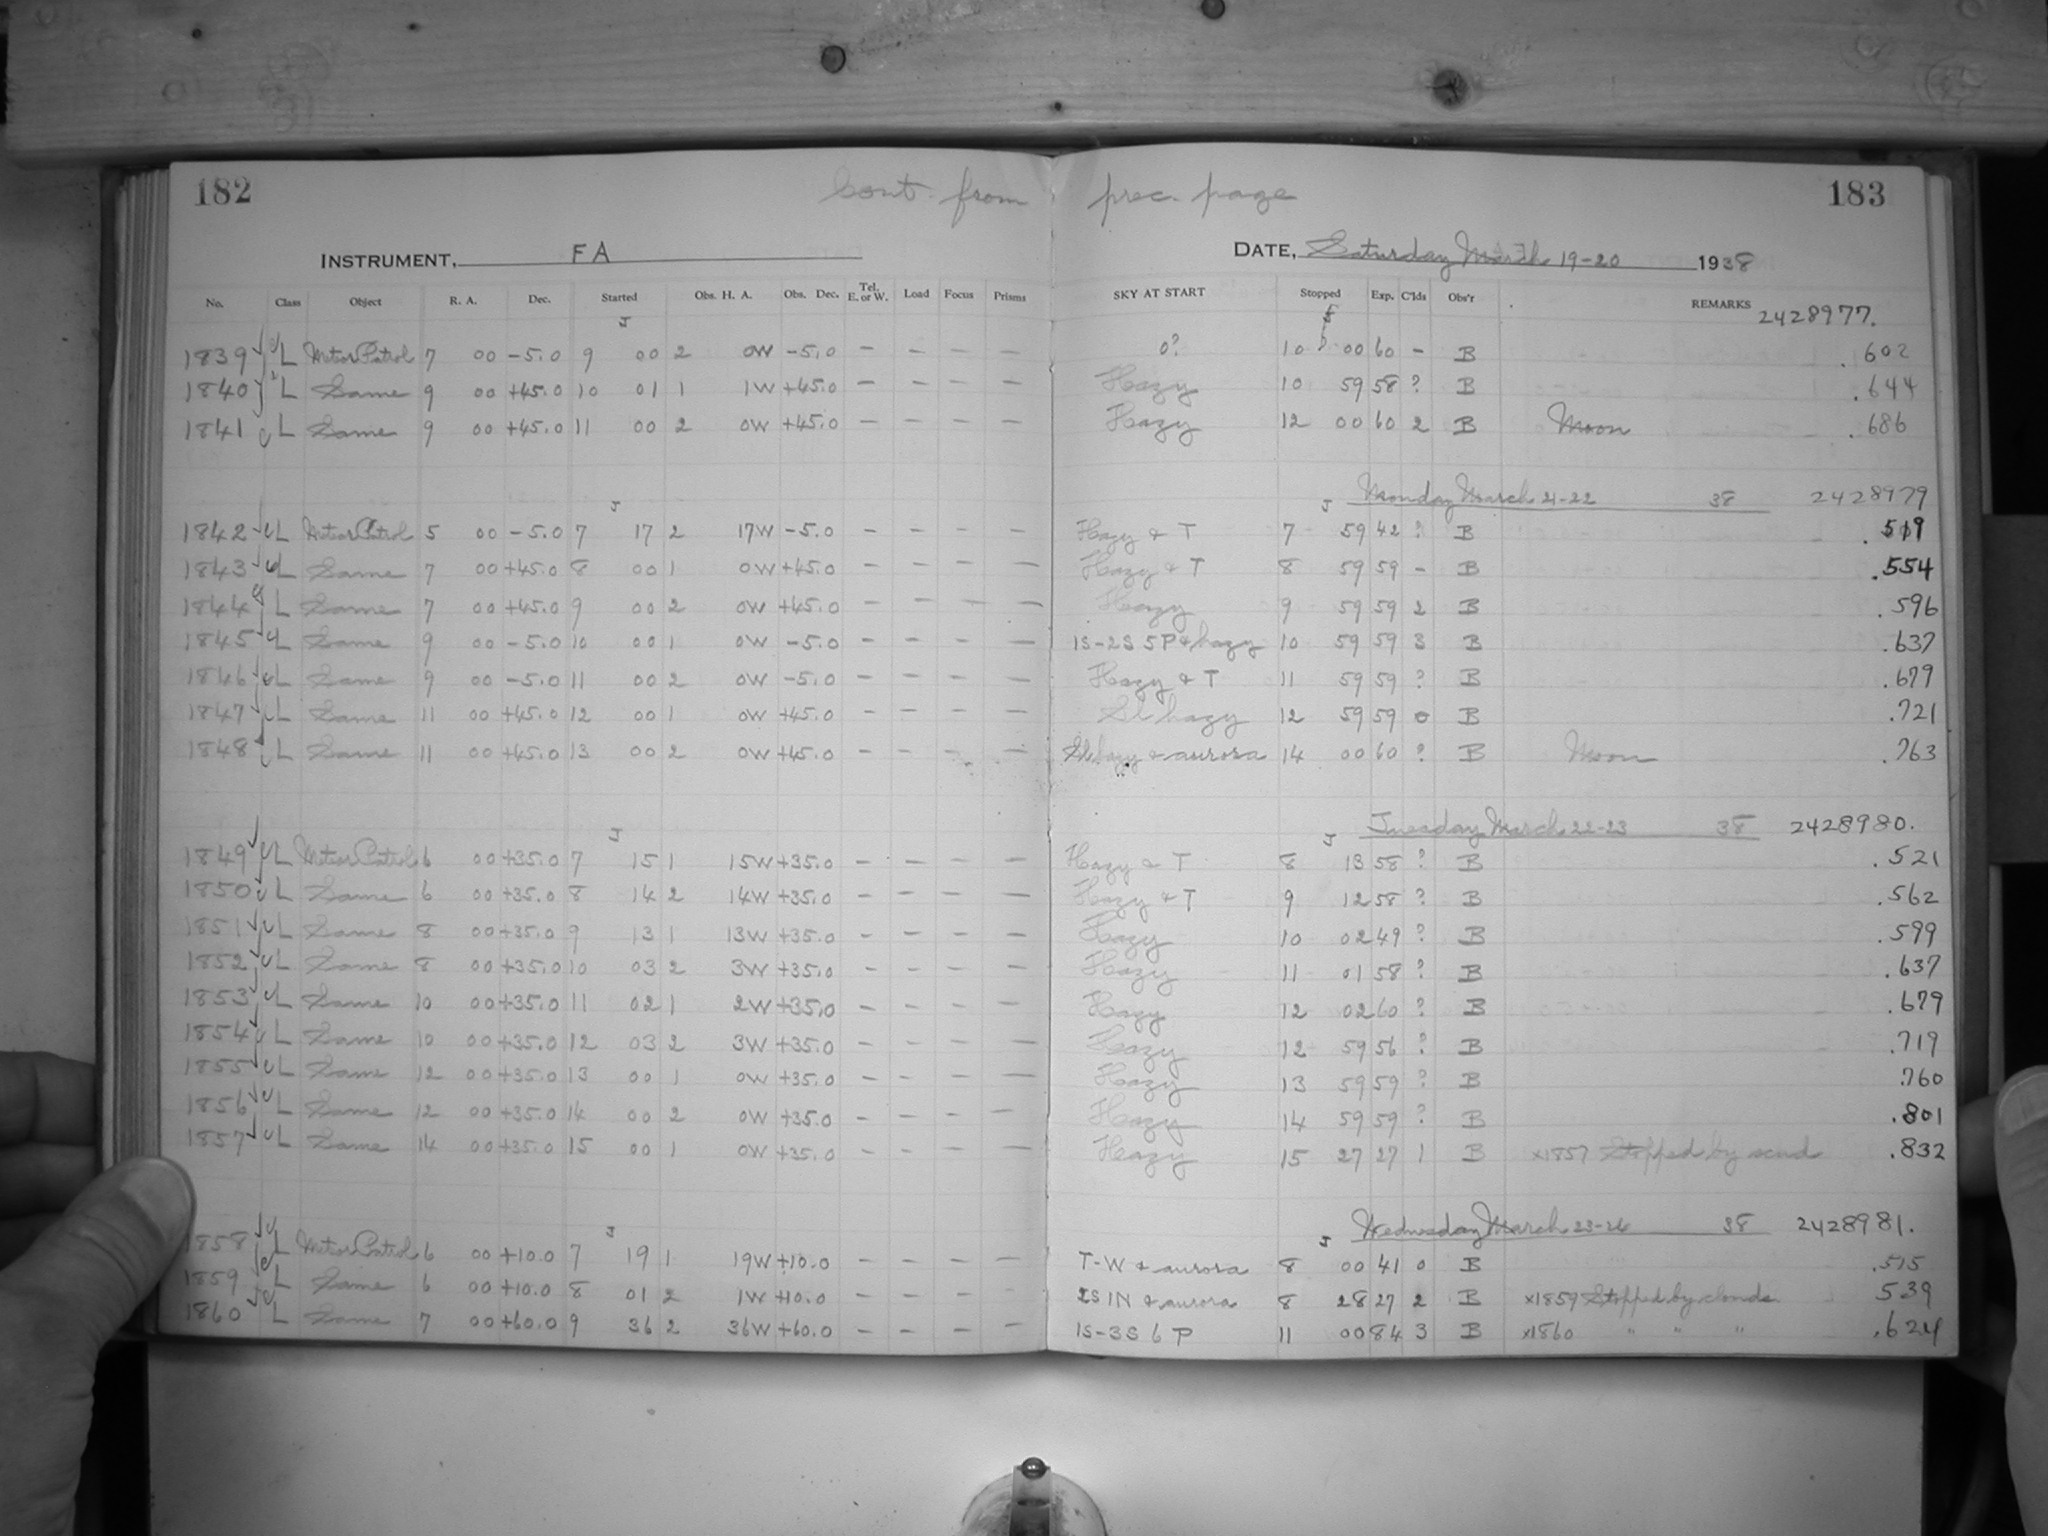 182 Cont. from prec. page 183
INSTRUMENT, FA DATE, Saturday March 19-20 1938
No. Class Object R. A. Dec. Started Obs. H. A. Obs. Dec. Tel. E. or W. Load Focus Prisms SKY AT START Stopped Exp. C'lds Obs'r REMARKS 2428977.
J
1839 L Meteor Patrol 7 00 -5.0 9 00 2 0W -5.0 - - - - 0? 10 00 60 - B .602
1840 L Same 9 00 +45.0 10 01 1 1W +45.0 - - - - Hazy 10 59 58 ? B .644
1841 L Same 9 00 +45.0 11 00 2 0W +45.0 - - - - Hazy 12 00 60 2 B Moon .686
J J Monday March 21-22 38 2428979
1842 L Meteor Patrol 5 00 -5.0 7 17 2 17W -5.0 - - - - Hazy & T 7 59 42 ? B .519
1843 L Same 7 00 +45.0 8 00 1 0W +45.0 - - - - Hazy & T 8 59 59 - B .554
1844 L Same 7 00 +45.0 9 00 2 0W +45.0 - - - - Hazy 9 59 59 2 B .596
1845 L Same 9 00 -5.0 10 00 1 0W -5.0 - - - - 1S-2S 5P & hazy 10 59 59 3 B .637
1846 L Same 9 00 -5.0 11 00 2 0W -5.0 - - - - Hazy & T 11 59 59 ? B .679
1847 L Same 11 00 +45.0 12 00 1 0W +45.0 - - - - Sl hazy 12 59 59 0 B .721
1848 L Same 11 00 +45.0 13 00 2 0W +45.0 - - - - Sl hazy & aurora 14 00 60 ? B Moon .763
J J Tuesday March 22-23 38 2428980.
1849 L Meteor Patrol 6 00 +35.0 7 15 1 15W +35.0 - - - - Hazy & T 8 13 58 ? B .521
1850 L Same 6 00 +35.0 8 14 2 14W +35.0 - - - - Hazy & T 9 12 58 ? B .562
1851 L Same 8 00 +35.0 9 13 1 13W +35.0 - - - - Hazy 10 02 49 ? B .599
1852 L Same 8 00 +35.0 10 03 2 3W +35.0 - - - - Hazy 11 01 58 ? B .637
1853 L Same 10 00 +35.0 11 02 1 2W +35.0 - - - - Hazy 12 02 60 ? B .679
1854 L Same 10 00 +35.0 12 03 2 3W +35.0 - - - - Hazy 12 59 56 ? B .719
1855 L Same 12 00 +35.0 13 00 1 0W +35.0 - - - - Hazy 13 59 59 ? B .760
1856 L Same 12 00 +35.0 14 00 2 0W +35.0 - - - - Hazy 14 59 59 ? B .801
1857 L Same 14 00 +35.0 15 00 1 0W +35.0 - - - - Hazy 15 27 27 1 B x1857 Stopped by scud .832
J J Wednesday March 23-24 38 2428981.
1858 L Meteor Patrol 6 00 +10.0 7 19 1 19W +10.0 - - - - T-W & aurora 8 00 41 0 B .515
1859 L Same 6 00 +10.0 8 01 2 1W +10.0 - - - - 2S 1N & aurora 8 28 27 2 B x1859 Stopped by clouds 539
1860 L Same 7 00 +60.0 9 36 2 36W +60.0 - - - - 1S-3S 6 P 11 00 84 3 B x1860 " " " .624